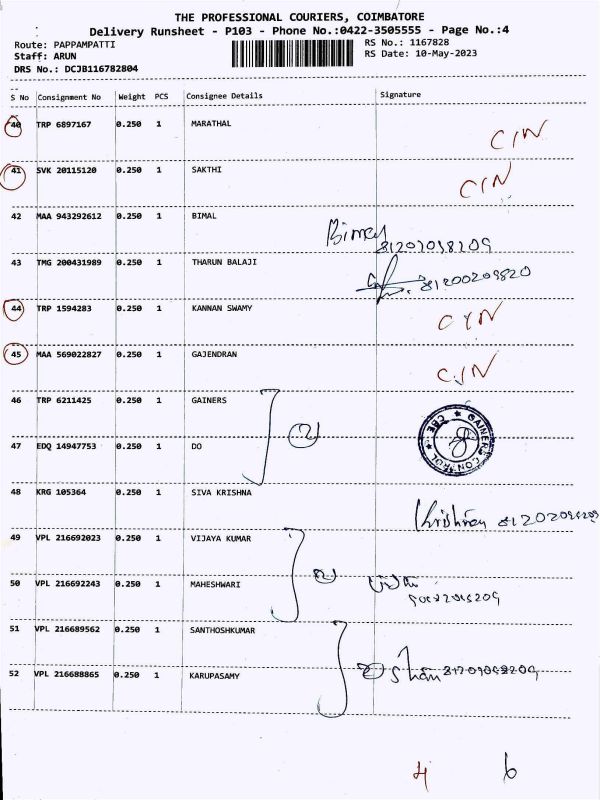 THE PROFESSIONAL COURIERS, COIMBATORE
Delivery Runsheet - P103 - Phone No.:0422-3505555 - Page No.:4
Route: PAPPAMPATTI
RS No.: 1167828
Staff: ARUN
RS Date: 10-May-2023
DRS No.: DCJB116782804
S No Consignment No Weight PCS Consignee Details Signature
40 TRP 6897167 0.250 1 MARATHAL CIN
41 SVK 20115120 0.250 1 SAKTHI CIN
42 MAA 943292612 0.250 1 BIMAL
43 TMG 200431989 0.250 1 THARUN BALAJI
44 TRP 1594283 0.250 1 KANNAN SWAMY CIN
45 MAA 569022827 0.250 1 GAJENDRAN CIN
46 TRP 6211425 0.250 1 GAINERS
GAINERS CONTROL CBE
47 EDQ 14947753 0.250 1 DO
48 KRG 105364 0.250 1 SIVA KRISHNA
49 VPL 216692023 0.250 1 VIJAYA KUMAR
50 VPL 216692243 0.250 1 MAHESHWARI
51 VPL 216689562 0.250 1 SANTHOSHKUMAR
52 VPL 216688865 0.250 1 KARUPASAMY
4 6